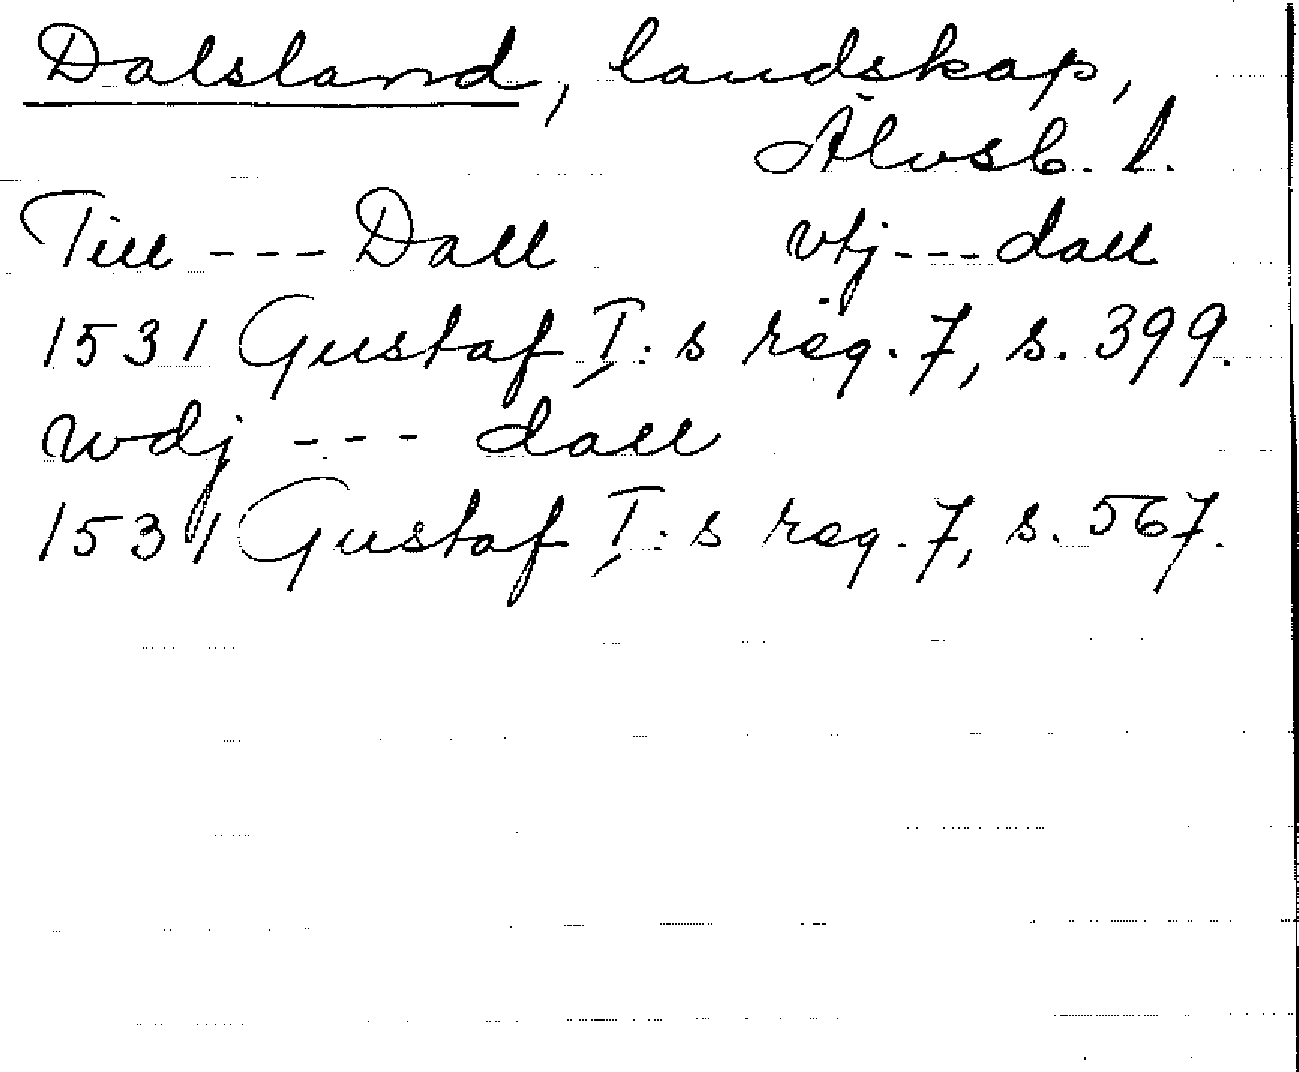 Dalsland, landskap,
Älvsb. l.
Till --- Dall vtj --- dall
1531 Gustaf I:s reg. 7, s. 399.
wdj --- dall
1531 Gustaf I:s reg. 7, s. 567.